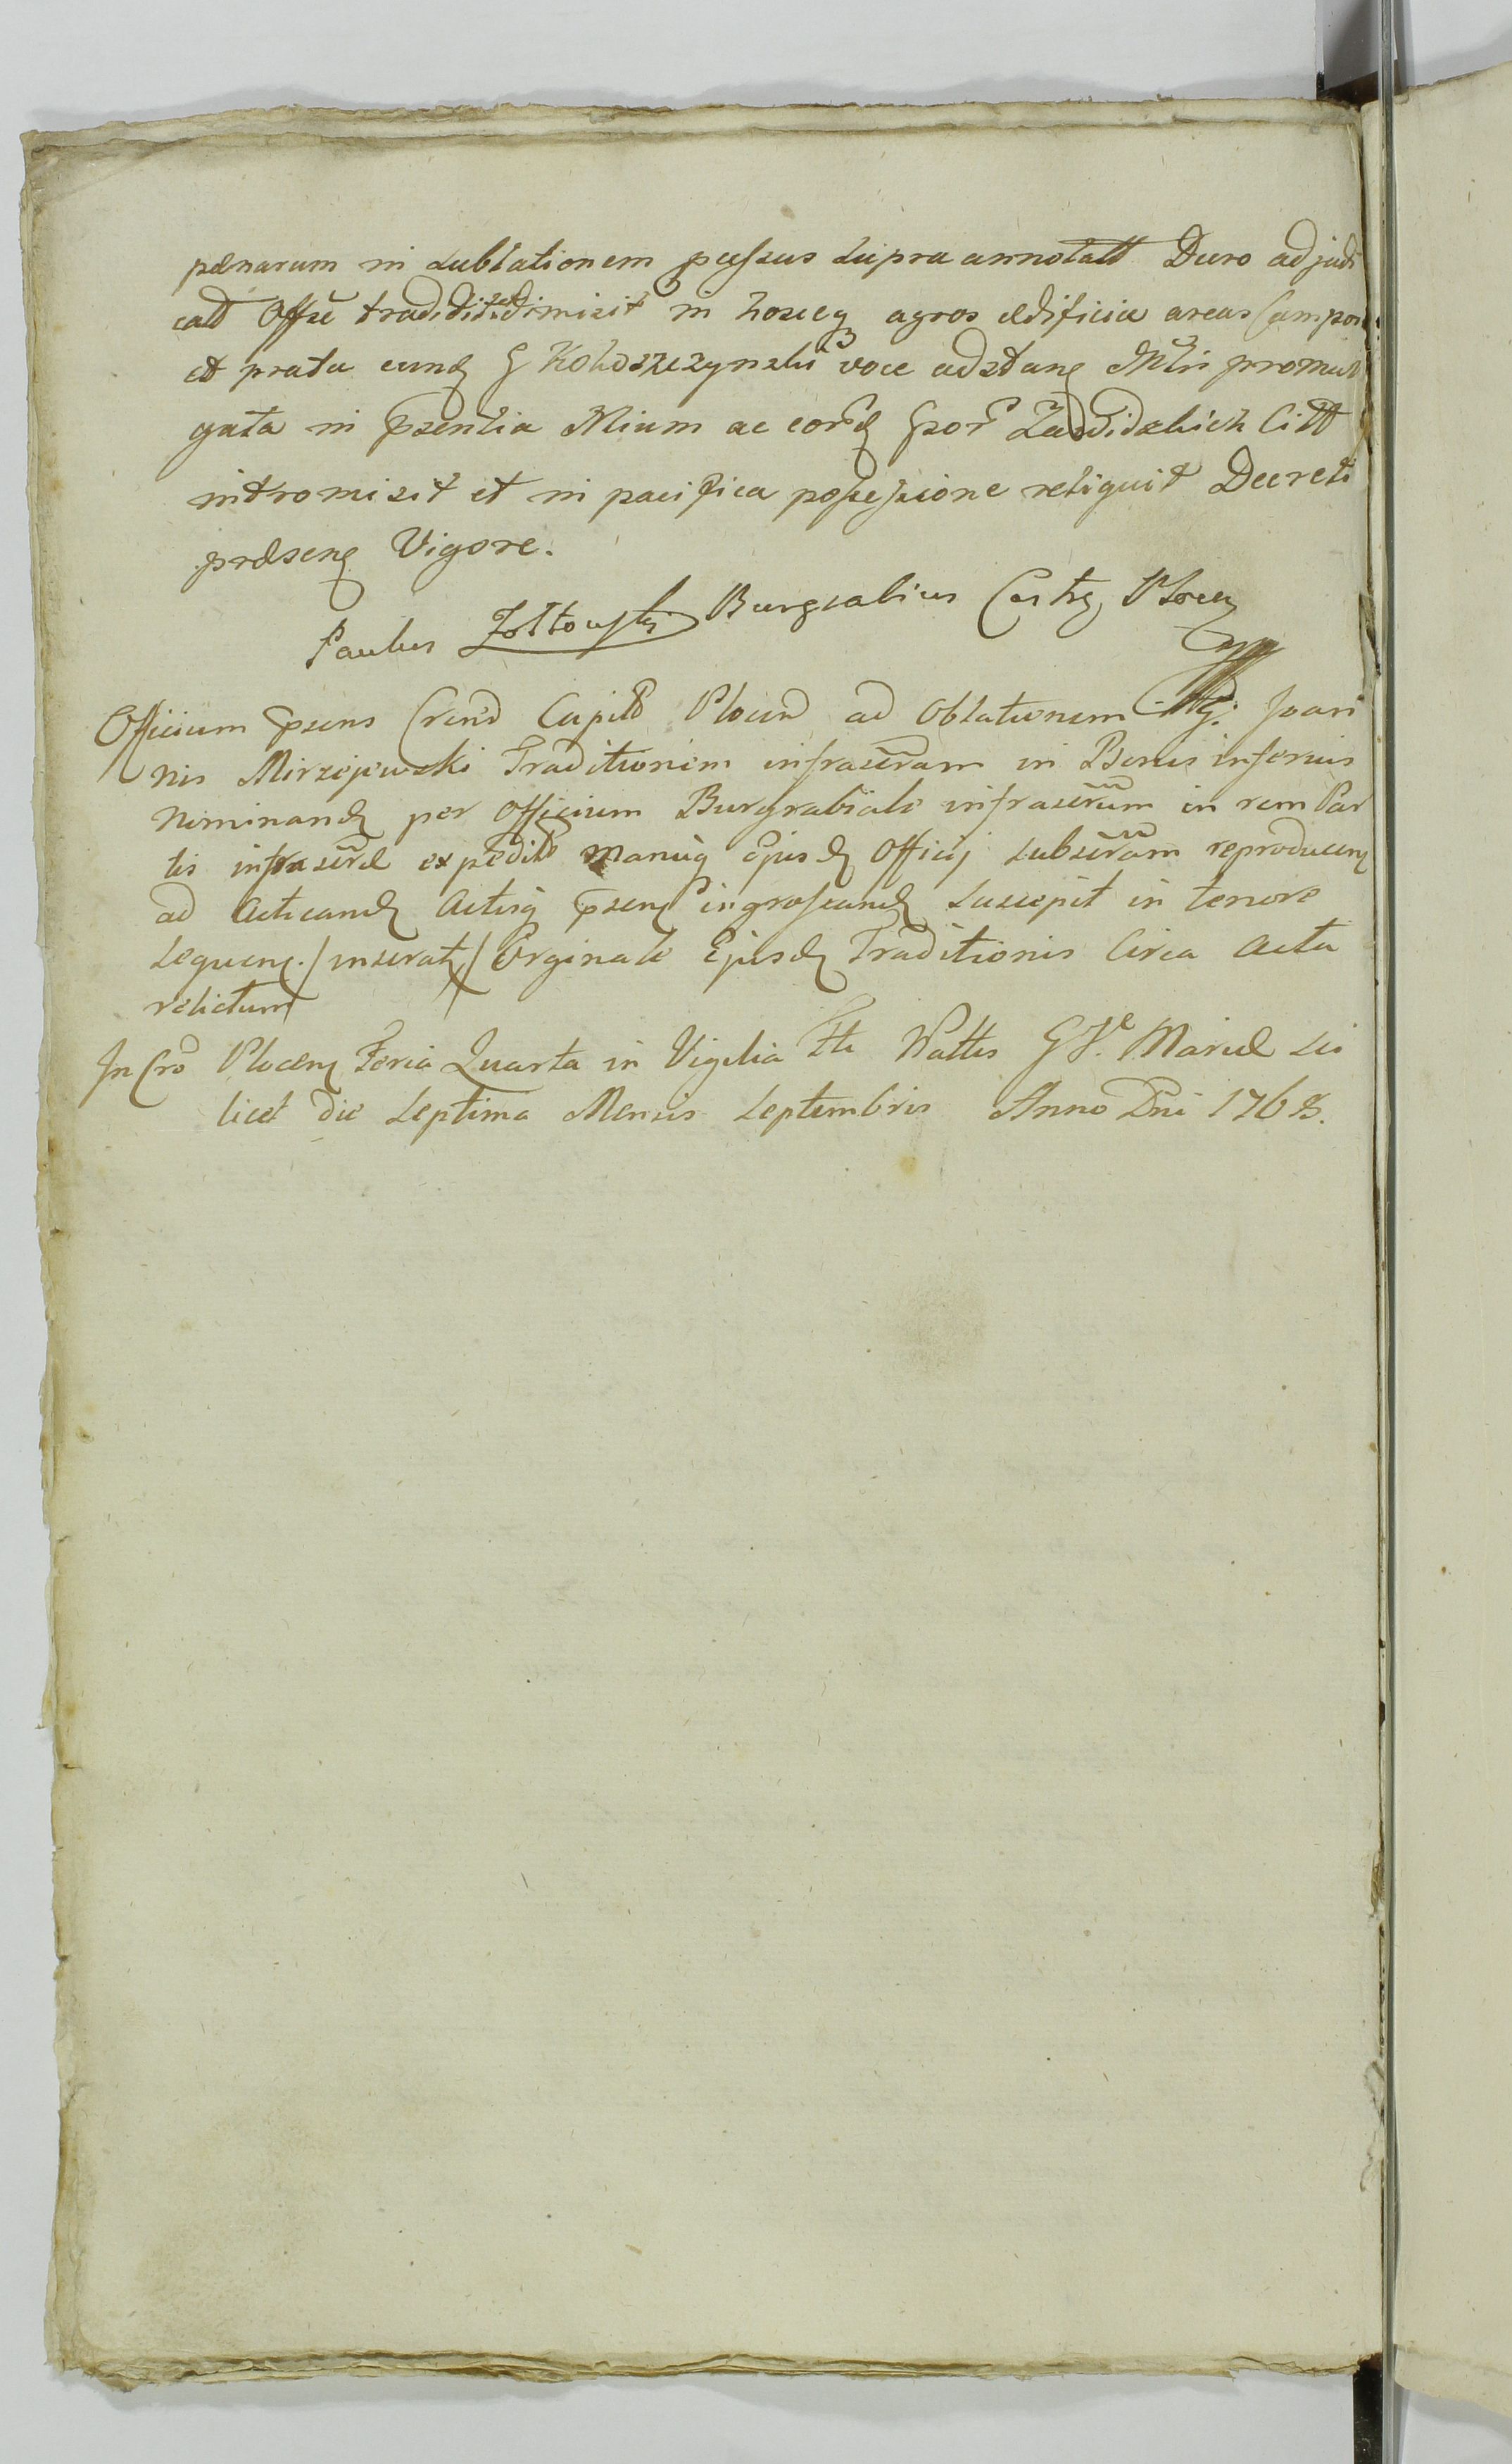 pænarum in sublationem passus supra annotatt Decro adjudi
catt Offse tradidit et dimisit in hosceq agros ædificia areas Campos
et prata eund G Koloszczynski voce adstan Mtri promul
gata in psentia Mium ac eord Gsor Zawidzkich Citt
intromisit et in pacifica possessione reliquit Decreti
præsen Vigore.
Paulus Zołtowski Burgrabius Castr Plocen
Officium psens Crend Capitt Plocen ad Oblationem G. Joan
nis Mirzejewski Traditionem infrascram in Bonis inferius
Nominand per Officium Burgrabiale infrascrum in rem Par
tis infrascræ expedit manuq Ejusd Officij subscram reproducen
ad Acticand Actisq psen ingrossand suscepit in tenore
sequen ./ inserat / Orginale Ejusd Traditionis Circa Acta
relictum
In Cro Plocen Feria Quarta in Vigilia Ftti Nattis G V. Mariæ sci
licet die septima Mensis septembris Anno Dni 1768.